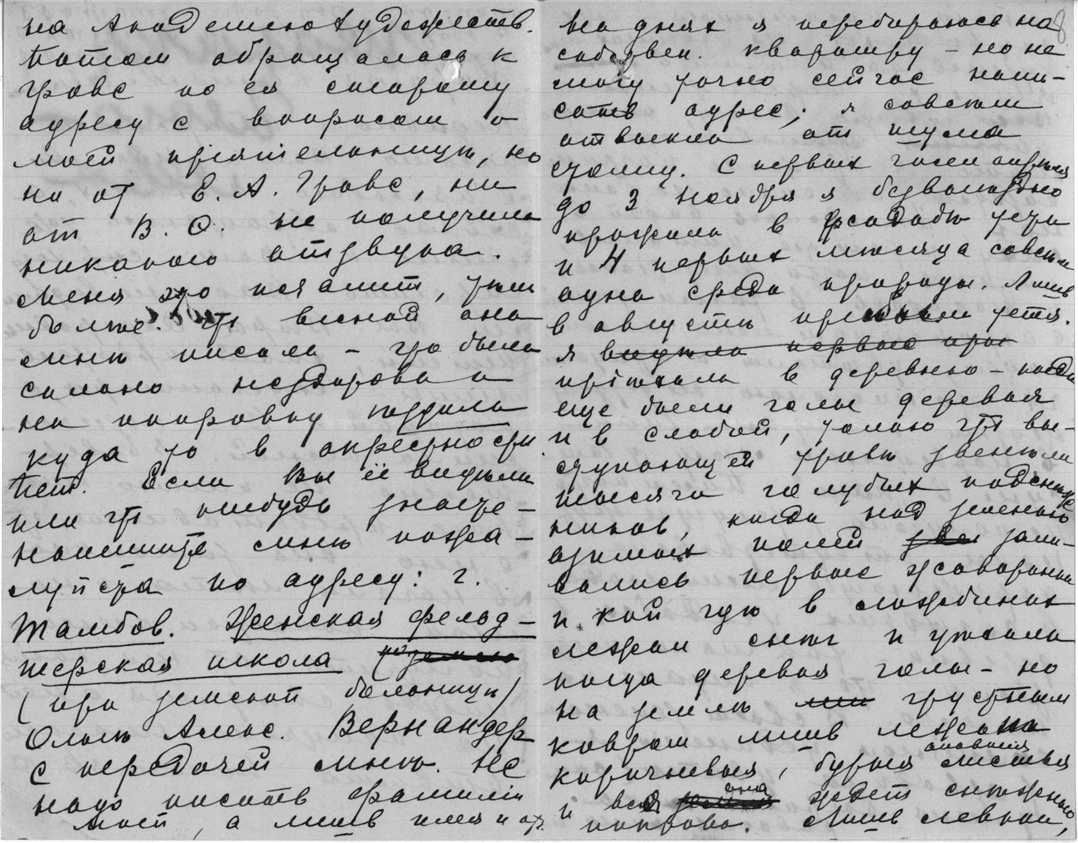 на Академию Художеств.
Потом обращалась к
Гравс по ея старому
адресу с вопросом о
моей пріятельницѣ, но
ни от Е. А. Гравс, ни
от В. О. не получила
никакого отзвука.
Меня это печалит, тѣм
болѣе что весной она
мнѣ писала – что была
сильно нездорова и
на поправку ѣздила
куда то в окрестности
Пет. Если Вы её видѣли
или что нибудь знаете –
напишите мнѣ пожа-
луйста по адресу: г.
Тамбов. Женская фельд-
шерская школа
(при земской больницѣ)
Ольгѣ Алекс. Вернандер
с передачей мнѣ. Не
надо писать фамиліи
моей, а лишь имя и от.
8
На днях я перебираюсь на
собствен. квартиру – но не
могу точно сейчас напи-
сать адрес; я совсѣм
отвыкла от шума
столиц. С первых чисел апрѣля
до 3 ноября я безвыѣздно
прожила в усадьбѣ
и 4 первых мѣсяца совсѣм
одна среди природы. Лишь
в августѣ пріѣхали дѣти.
Я видѣла первые
пріѣхала в деревню – когда
еще были голые деревья
и в слабой, только что вы-
ступающей травѣ звенѣли
тысячи голубых подснѣж-
ников, когда над зеленью
озимых полей зали-
вались первые жаворонки
и кой гдѣ в ложбинах
лежал снѣг и уѣхала
когда деревья голы – но
на землѣ грустным
ковром лишь лежали
коричневыя, бурыя опавшія листья
и вся она ждет снѣжнаго
покрова. Лишь левкои,